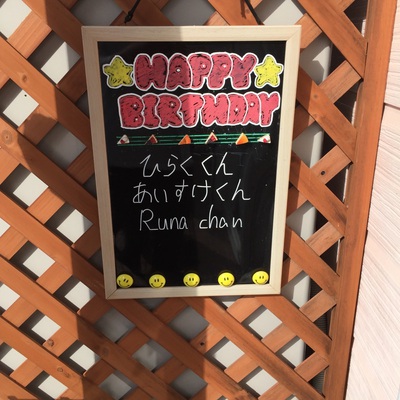 HAPPY
BIRTHDAY
ひらくくん
あいすけくん
Runa chan